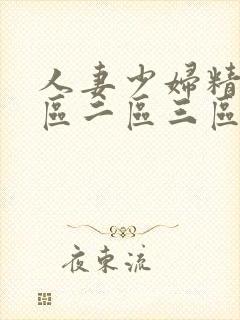 人妻少婦精
區二區三區
夜束流